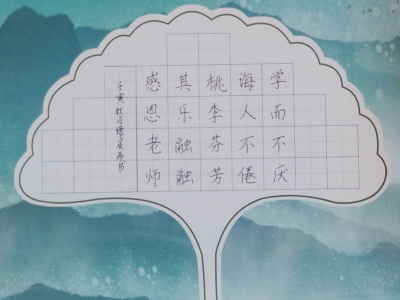 学而不厌
诲人不倦
桃李芬芳
其乐融融
感恩老师
壬寅秋月书